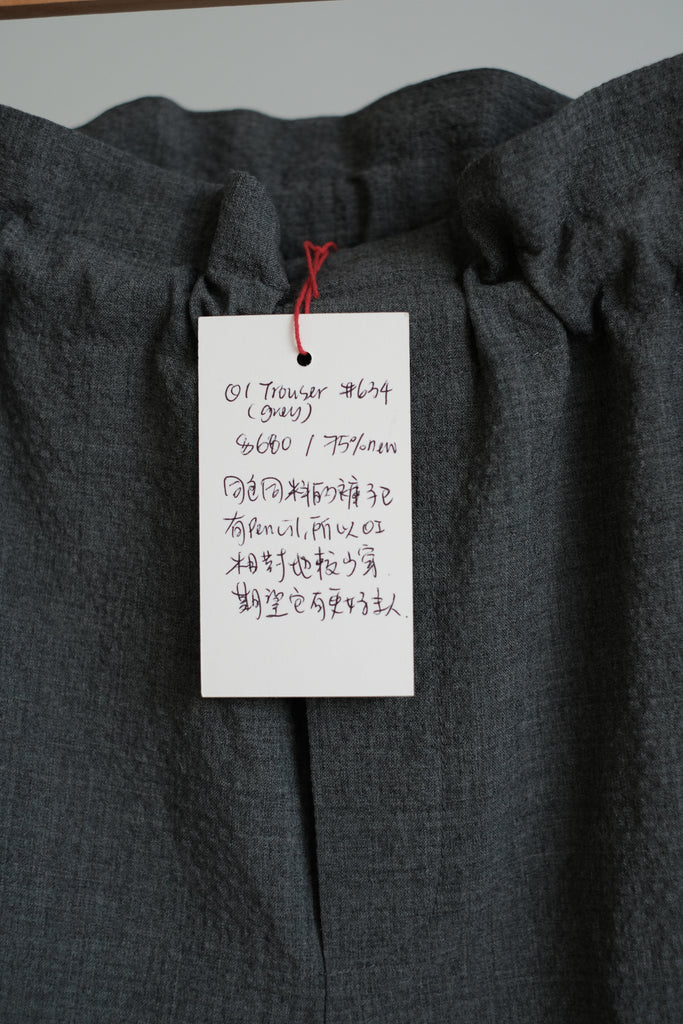 01 Trouser #634
(grey)
$680 / 75% new
同色同料的褲子已
有pencil,所以01
相對地較少穿.
期望它有更好主人.